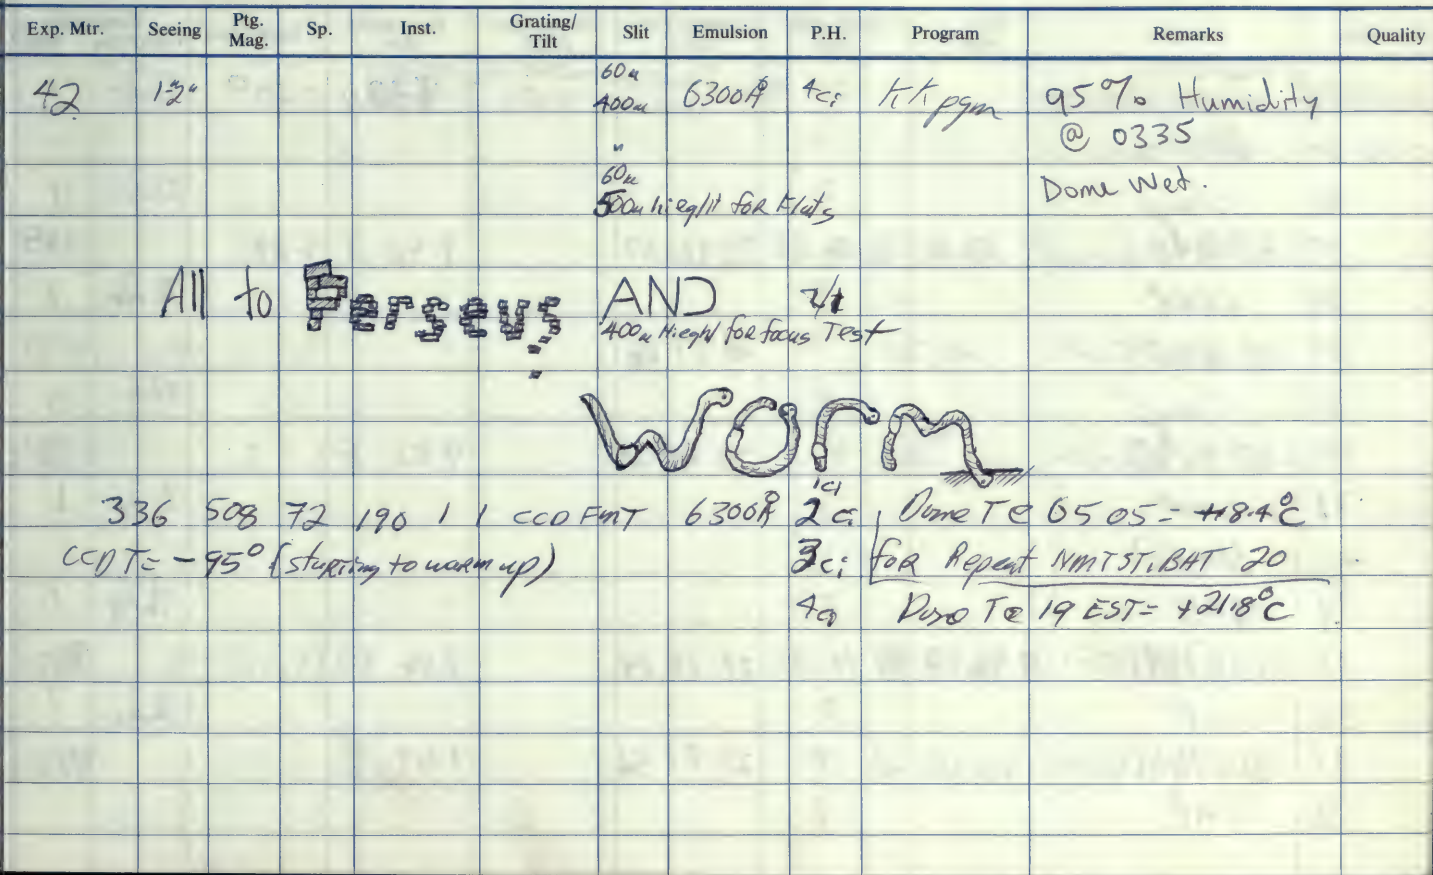 Exp. Mtr. Seeing Ptg. Mag. Sp. Inst. Grating/ Tilt Slit Emulsion P.H. Program Remarks Quality
60u
42 1-2" 400u 6300Å 4ci KK pgm 95% Humidity
" @ 0335
60u Dome Wet.
500u hieght for Flats
All to Perseus AND
400u Hieght for focus Test
worm
1ci
336 508 72 190 1 1 CCD FMT 6300Å 2ci Dome T@ 0505= +18.4°C
CCD T= -95° (starting to warm up) 3ci for Repeat NMTST.BAT 20
4ci Dome T@ 19 EST= +21.8°C